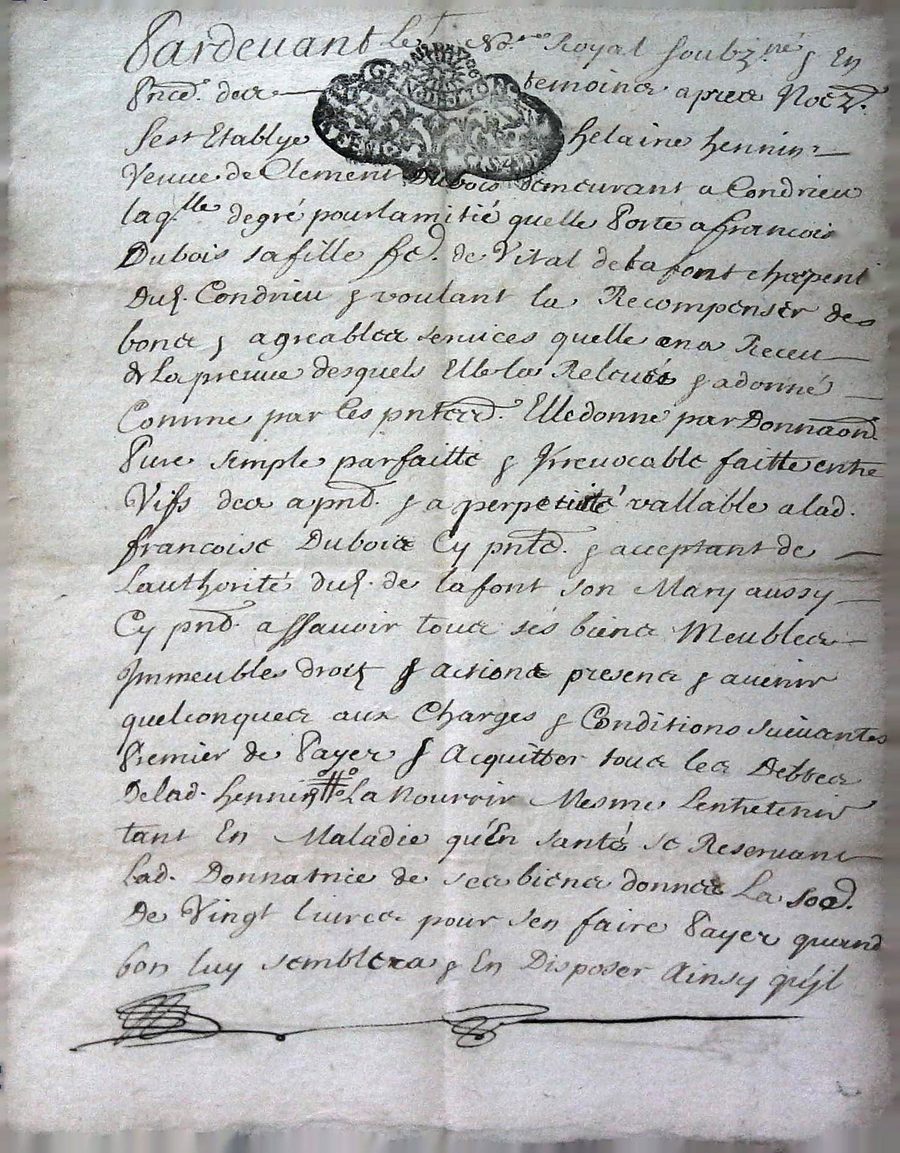 Pardevant le No.re Royal Soubz.né & En
Pnce. des temoins apres Nommz.
Sest Etablye helaine hennin
Veuue de Clement Dubois demeurant a Condrieu
laq.lle degré pour lamitié quelle Porte a francois
Dubois sa fille fe. de Vital de la font charpenti
Dud. Condrieu & voulant la Recompenser des
bons & agreables seruices quelle en a Receu
& La preuue desquels Elle la Releués & a donné
Comme par Ces pntes. Elle donne par Donnaon.
Pure simple parfaitte & Irreuocable faitte entre
Vifs des a pnt. & a perpetuité vallable a lad.
francoise Dubois Cy pnte. & acceptant de
Lauthorité dud. de la font son Mary aussy
Cy pnt. assauoir tous ses biens Meubles
Immeubles droits & actions presens & auenir
quelconques aux Charges & Conditions suiuantes
Premier de Payer & Acquitter tous les Debtes
De lad. hennin La Nourrir Mesme Lentretenir
tant En Maladie qu'En santé se Reseruant
Lad. Donnatrice de ses biens donnes La Soe.
De Vingt liures pour sen faire Payer quand
bon luy semblera & En Disposer Ainsy qu'jl